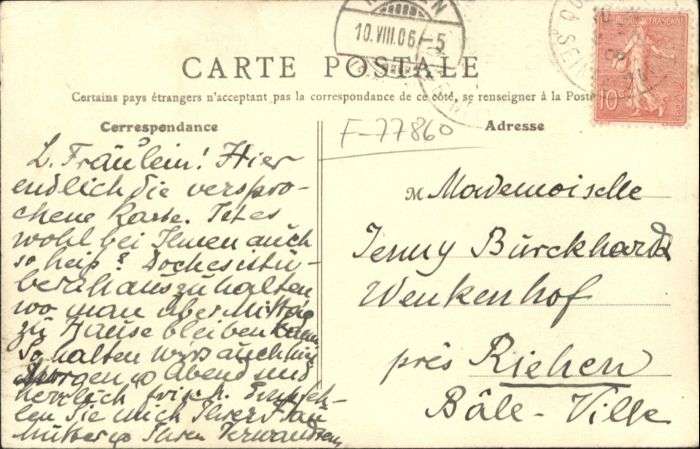 10.VIII.06.-5
CARTE POSTALE
Certains pays étrangers n'acceptent pas la correspondance de ce côté, se renseigner à la Poste
Correspondance
F-77860
Adresse
L. Fräulein! Hier
endlich die verspro-
chene Karte. Ist es
wohl bei Ihnen auch
so heiß? Doch es ist ü-
berall auszuhalten
wo man über Mittag
zu Hause bleiben kann
So halten wirs auch hier
Morgen & Abend sind
herrlich frisch. Empfeh-
len Sie mich Ihrer Frau
Mutter & Ihren Verwandten
M Mademoiselle
Jenny Burckhardt
Wenkenhof
près Riehen
Bâle-Ville
10